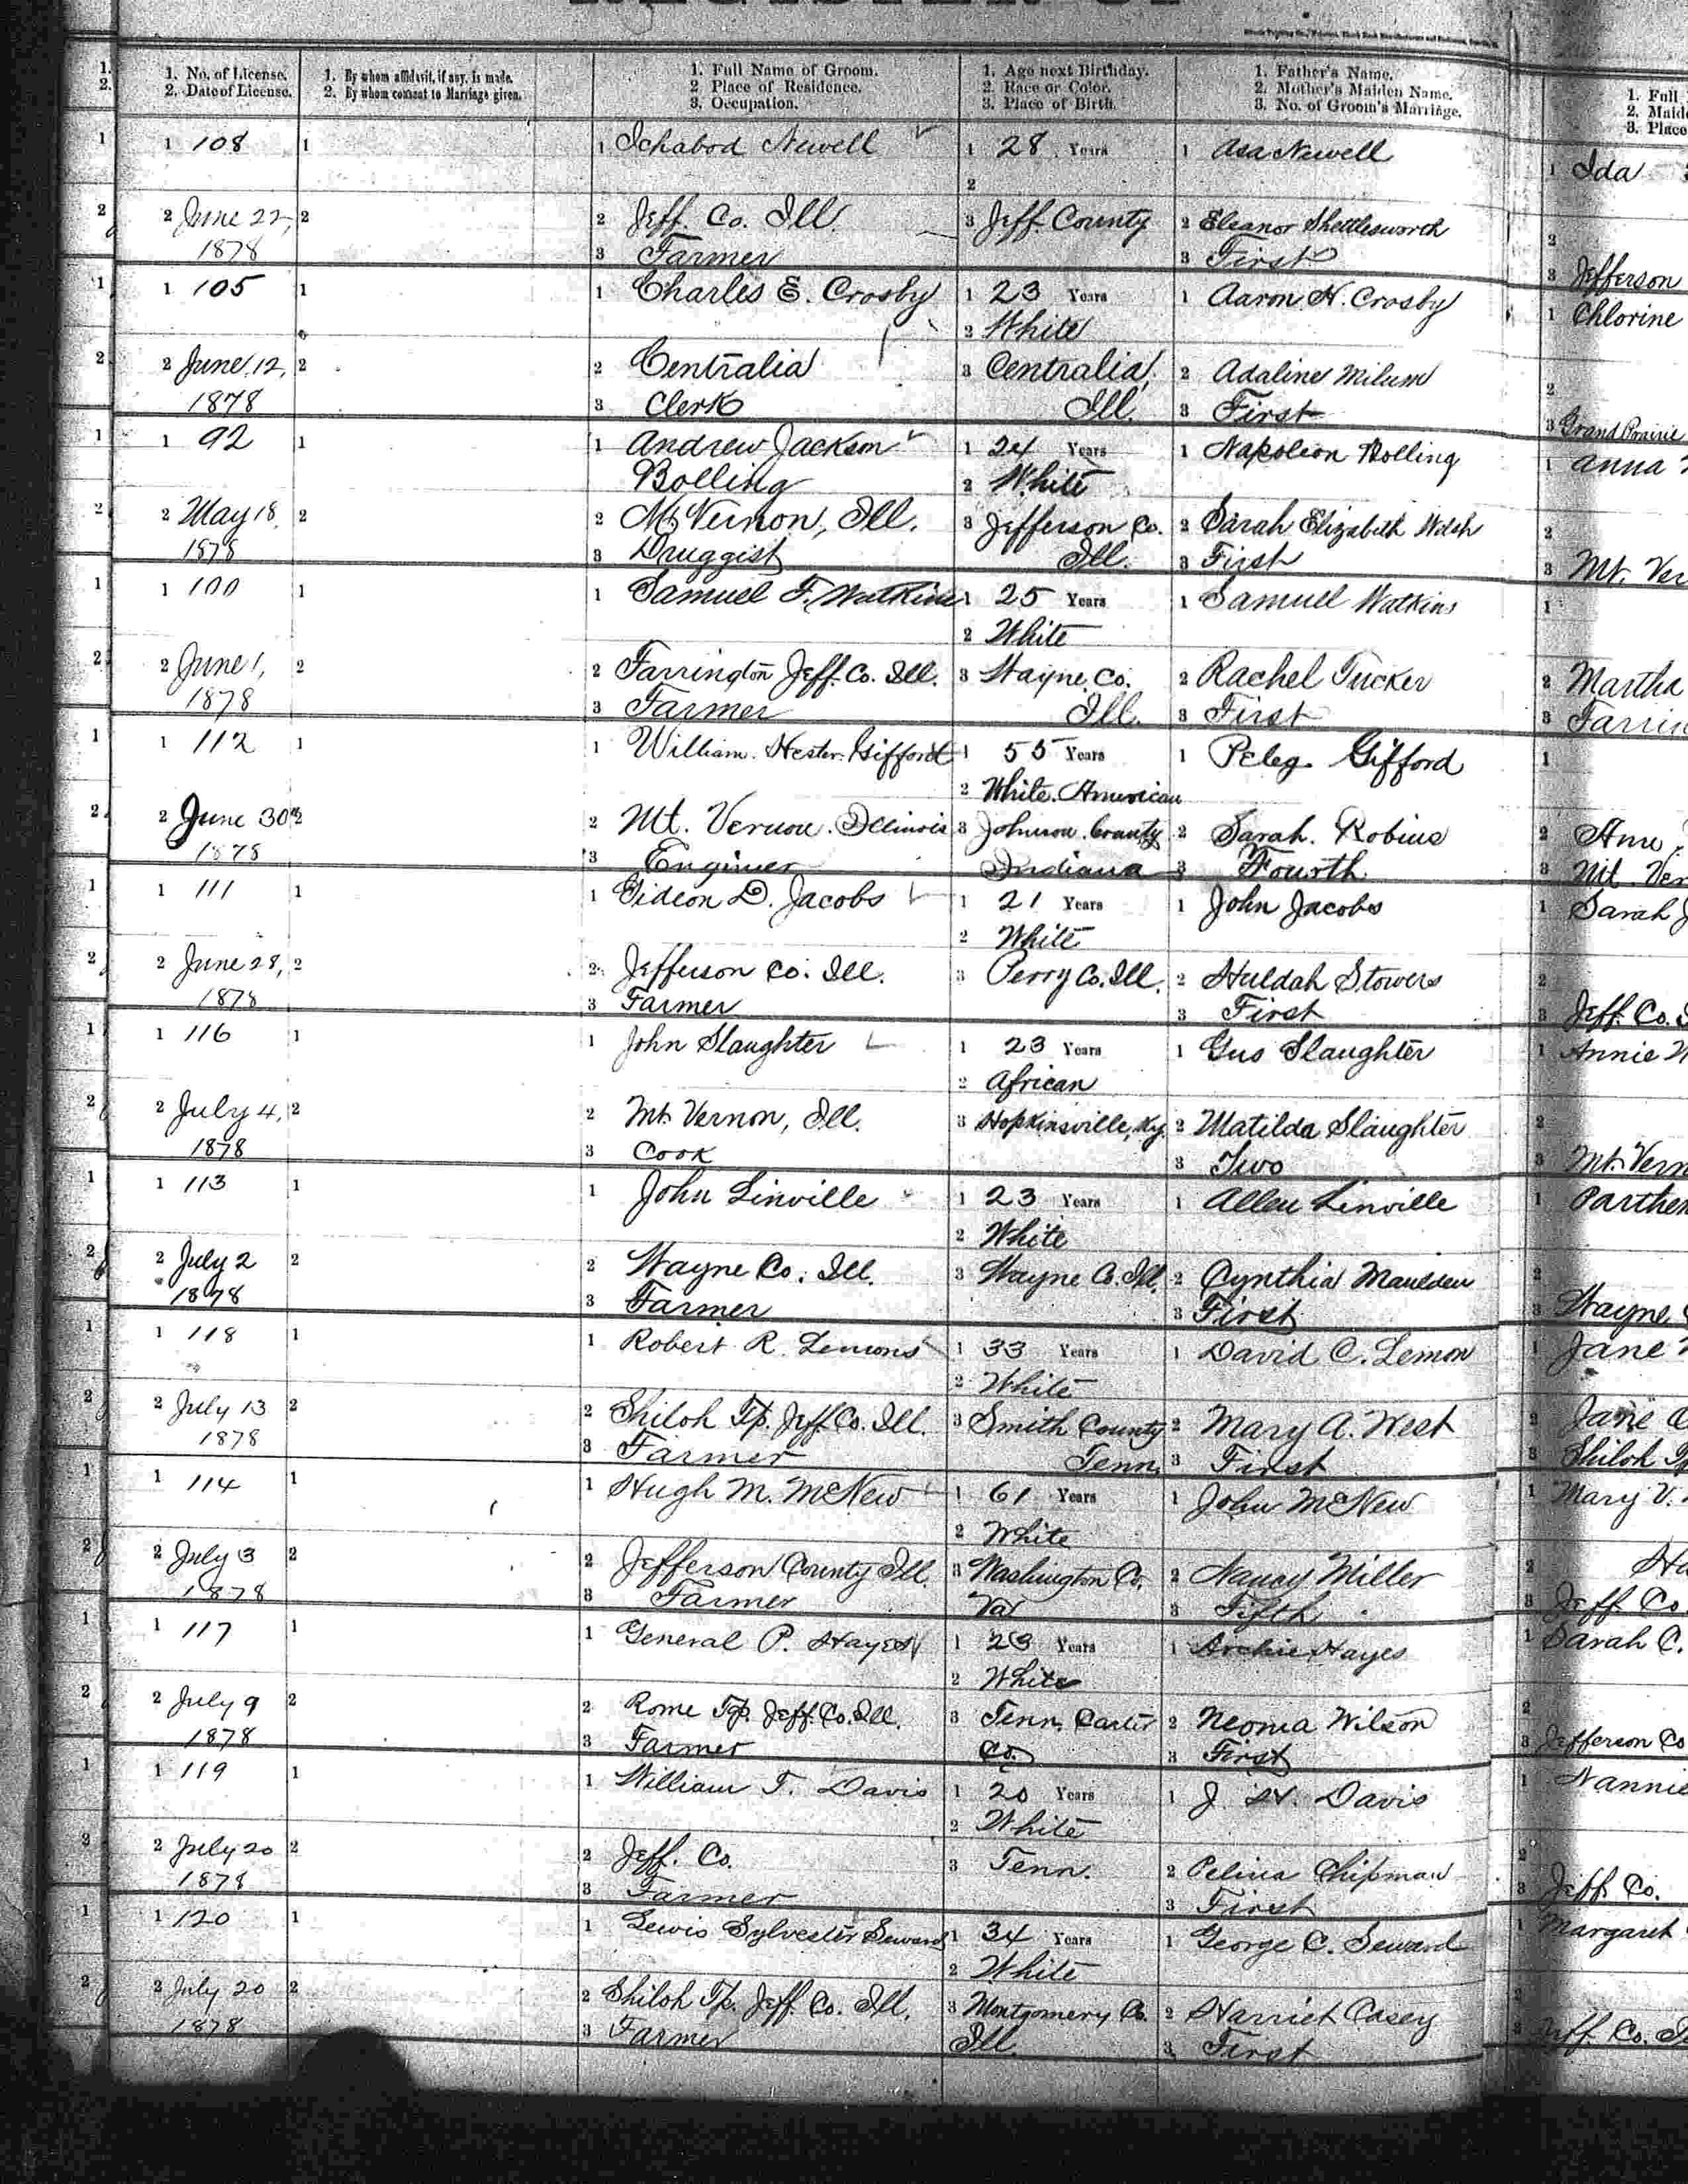 1. No. of License.
2. Date of License.
1. By whom affidavit, if any, is made.
2. By whom consent to Marriage given.
1. Full Name of Groom.
2. Place of Residence.
3. Occupation.
1. Age next Birthday.
2. Race or Color.
3. Place of Birth.
1. Father's Name.
2. Mother's Maiden Name.
3. No. of Groom's Marriage.
1. Full
2. Maide
3. Place
1 108 1 1 Ichabod Newell 1 28 Years 1 Asa Newell 1 Ida
2
2 June 22, 2 2 Jeff. Co. Ill. 3 Jeff County 2 Eleanor Shettlesworth 2
1878 3 Farmer 3 First 3 Jefferson
1 105 1 1 Charles E. Crosby 1 23 Years 1 Aaron H. Crosby 1 Chlorine
2 White
2 June 12, 2 2 Centralia 3 Centralia, 2 Adaline Milum 2
1878 3 Clerk Ill. 3 First 3 Grand Prairie
1 92 1 1 Andrew Jackson 1 24 Years 1 Napoleon Bolling 1 Anna
Bolling 2 White
2 May 18, 2 2 Mt Vernon, Ill. 3 Jefferson Co. 2 Sarah Elizabeth Welsh 2
1878 3 Druggist Ill. 3 First 3 Mt. Ver
1 100 1 1 Samuel F. Watkins 1 25 Years 1 Samuel Watkins 1
2 White
2 June 1, 2 2 Farrington Jeff. Co. Ill. 3 Wayne Co. 2 Rachel Tucker 2 Martha
1878 3 Farmer Ill. 3 First 3 Farrin
1 112 1 1 William. Hester. Gifford 1 55 Years 1 Peleg. Gifford 1
2 White. American
2 June 30th 2 2 Mt. Vernon. Illinois 3 Johnson. County 2 Sarah. Robins 2 Ann
1878 3 Enginer Indiana 3 Fourth. 3 Mt. Ver
1 111 1 1 Gideon D. Jacobs 1 21 Years 1 John Jacobs 1 Sarah J
2 White
2 June 28, 2 2 Jefferson Co. Ill. 3 Perry Co. Ill. 2 Huldah Stowers 2
1878 3 Farmer 3 First 3 Jeff. Co.
1 116 1 1 John Slaughter 1 23 Years 1 Gus Slaughter 1 Annie
2 African
2 July 4, 2 2 Mt. Vernon, Ill. 3 Hopkinsville, Ky. 2 Matilda Slaughter 2
1878 3 Cook 3 Two 3 Mt. Vern
1 113 1 1 John Linville 1 23 Years 1 Allen Linville 1 Parthen
2 White
2 July 2 2 2 Wayne Co. Ill. 3 Wayne Co. Ill. 2 Cynthia Maulden 2
1878 3 Farmer 3 First 3 Wayne
1 118 1 1 Robert R. Lemons 1 33 Years 1 David C. Lemon 1 Jane
2 White
2 July 13 2 2 Shiloh Tp. Jeff. Co. Ill. 3 Smith County 2 Mary A. West 2 Jane
1878 3 Farmer Tenn. 3 First 3 Shiloh Tp
1 114 1 1 Hugh M. McNew 1 61 Years 1 John McNew 1 Mary V.
2 White
2 July 3 2 2 Jefferson County Ill. 3 Washington Co. 2 Nancy Miller 2 Ha
1878 3 Farmer Va 3 Fifth. 3 Jeff Co.
1 117 1 1 General P. Hayes 1 23 Years 1 Archie Hayes 1 Sarah C.
2 White
2 July 9 2 2 Rome Tp. Jeff. Co. Ill. 3 Tenn. Carter 2 Neoma Wilson 2
1878 3 Farmer Co. 3 First 3 Jefferson Co
1 119 1 1 William T. Davis 1 20 Years 1 J. H. Davis 1 Nannie
2 White
2 July 20 2 2 Jeff. Co. 3 Tenn. 2 Pelina Chipman 2
1878 3 Farmer 3 First 3 Jeff. Co.
1 120 1 1 Lewis Sylvester Seward 1 34 Years 1 George C. Seward 1 Margaret
2 White
2 July 20 2 2 Shiloh Tp. Jeff. Co. Ill. 3 Montgomery Co. 2 Harriet Casey 2
1878 3 Farmer Ill. 3 First 3 Jeff. Co.